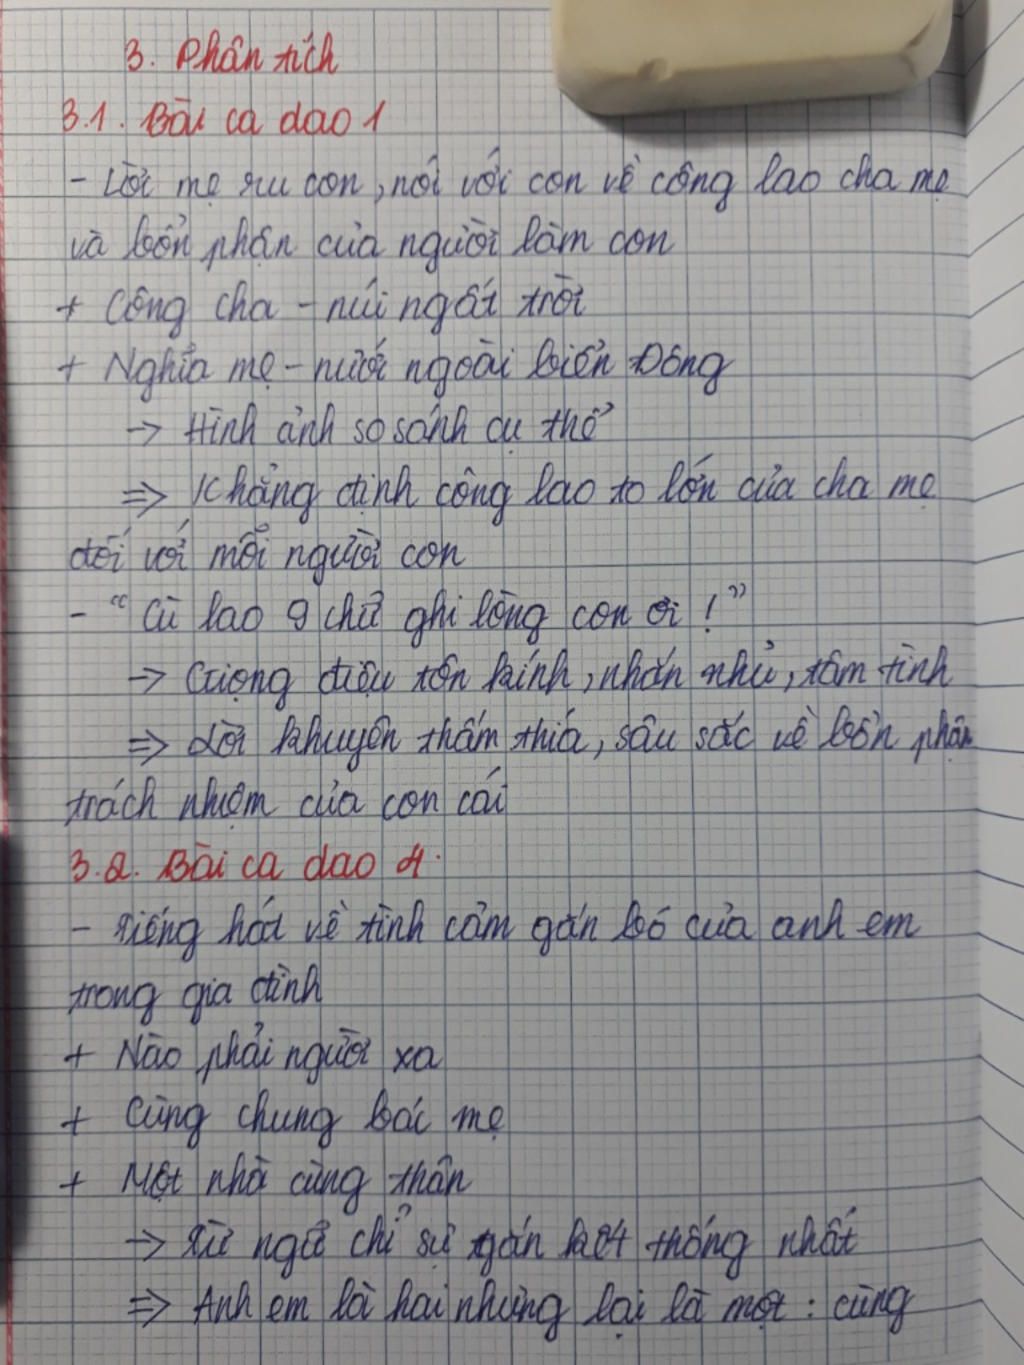 3. Phân tích
3.1. Bài ca dao 1
- Lời mẹ ru con, nói với con về công lao cha mẹ
và bổn phận của người làm con
+ Công cha - núi ngất trời
+ Nghĩa mẹ - nước ngoài biển Đông
→ Hình ảnh so sánh cụ thể
⇒ Khẳng định công lao to lớn của cha mẹ
đối với mỗi người con
- "Cù lao 9 chữ ghi lòng con ơi!"
→ Giọng điệu tôn kính, nhắn nhủ, tâm tình
⇒ Lời khuyên thấm thía, sâu sắc về bổn phận
trách nhiệm của con cái
3.2. Bài ca dao 4.
- Tiếng hát về tình cảm gắn bó của anh em
trong gia đình
+ Nào phải người xa
+ Cùng chung bác mẹ
+ Một nhà cùng thân
→ Từ ngữ chỉ sự gắn kết thống nhất
⇒ Anh em là hai nhưng lại là một: cùng